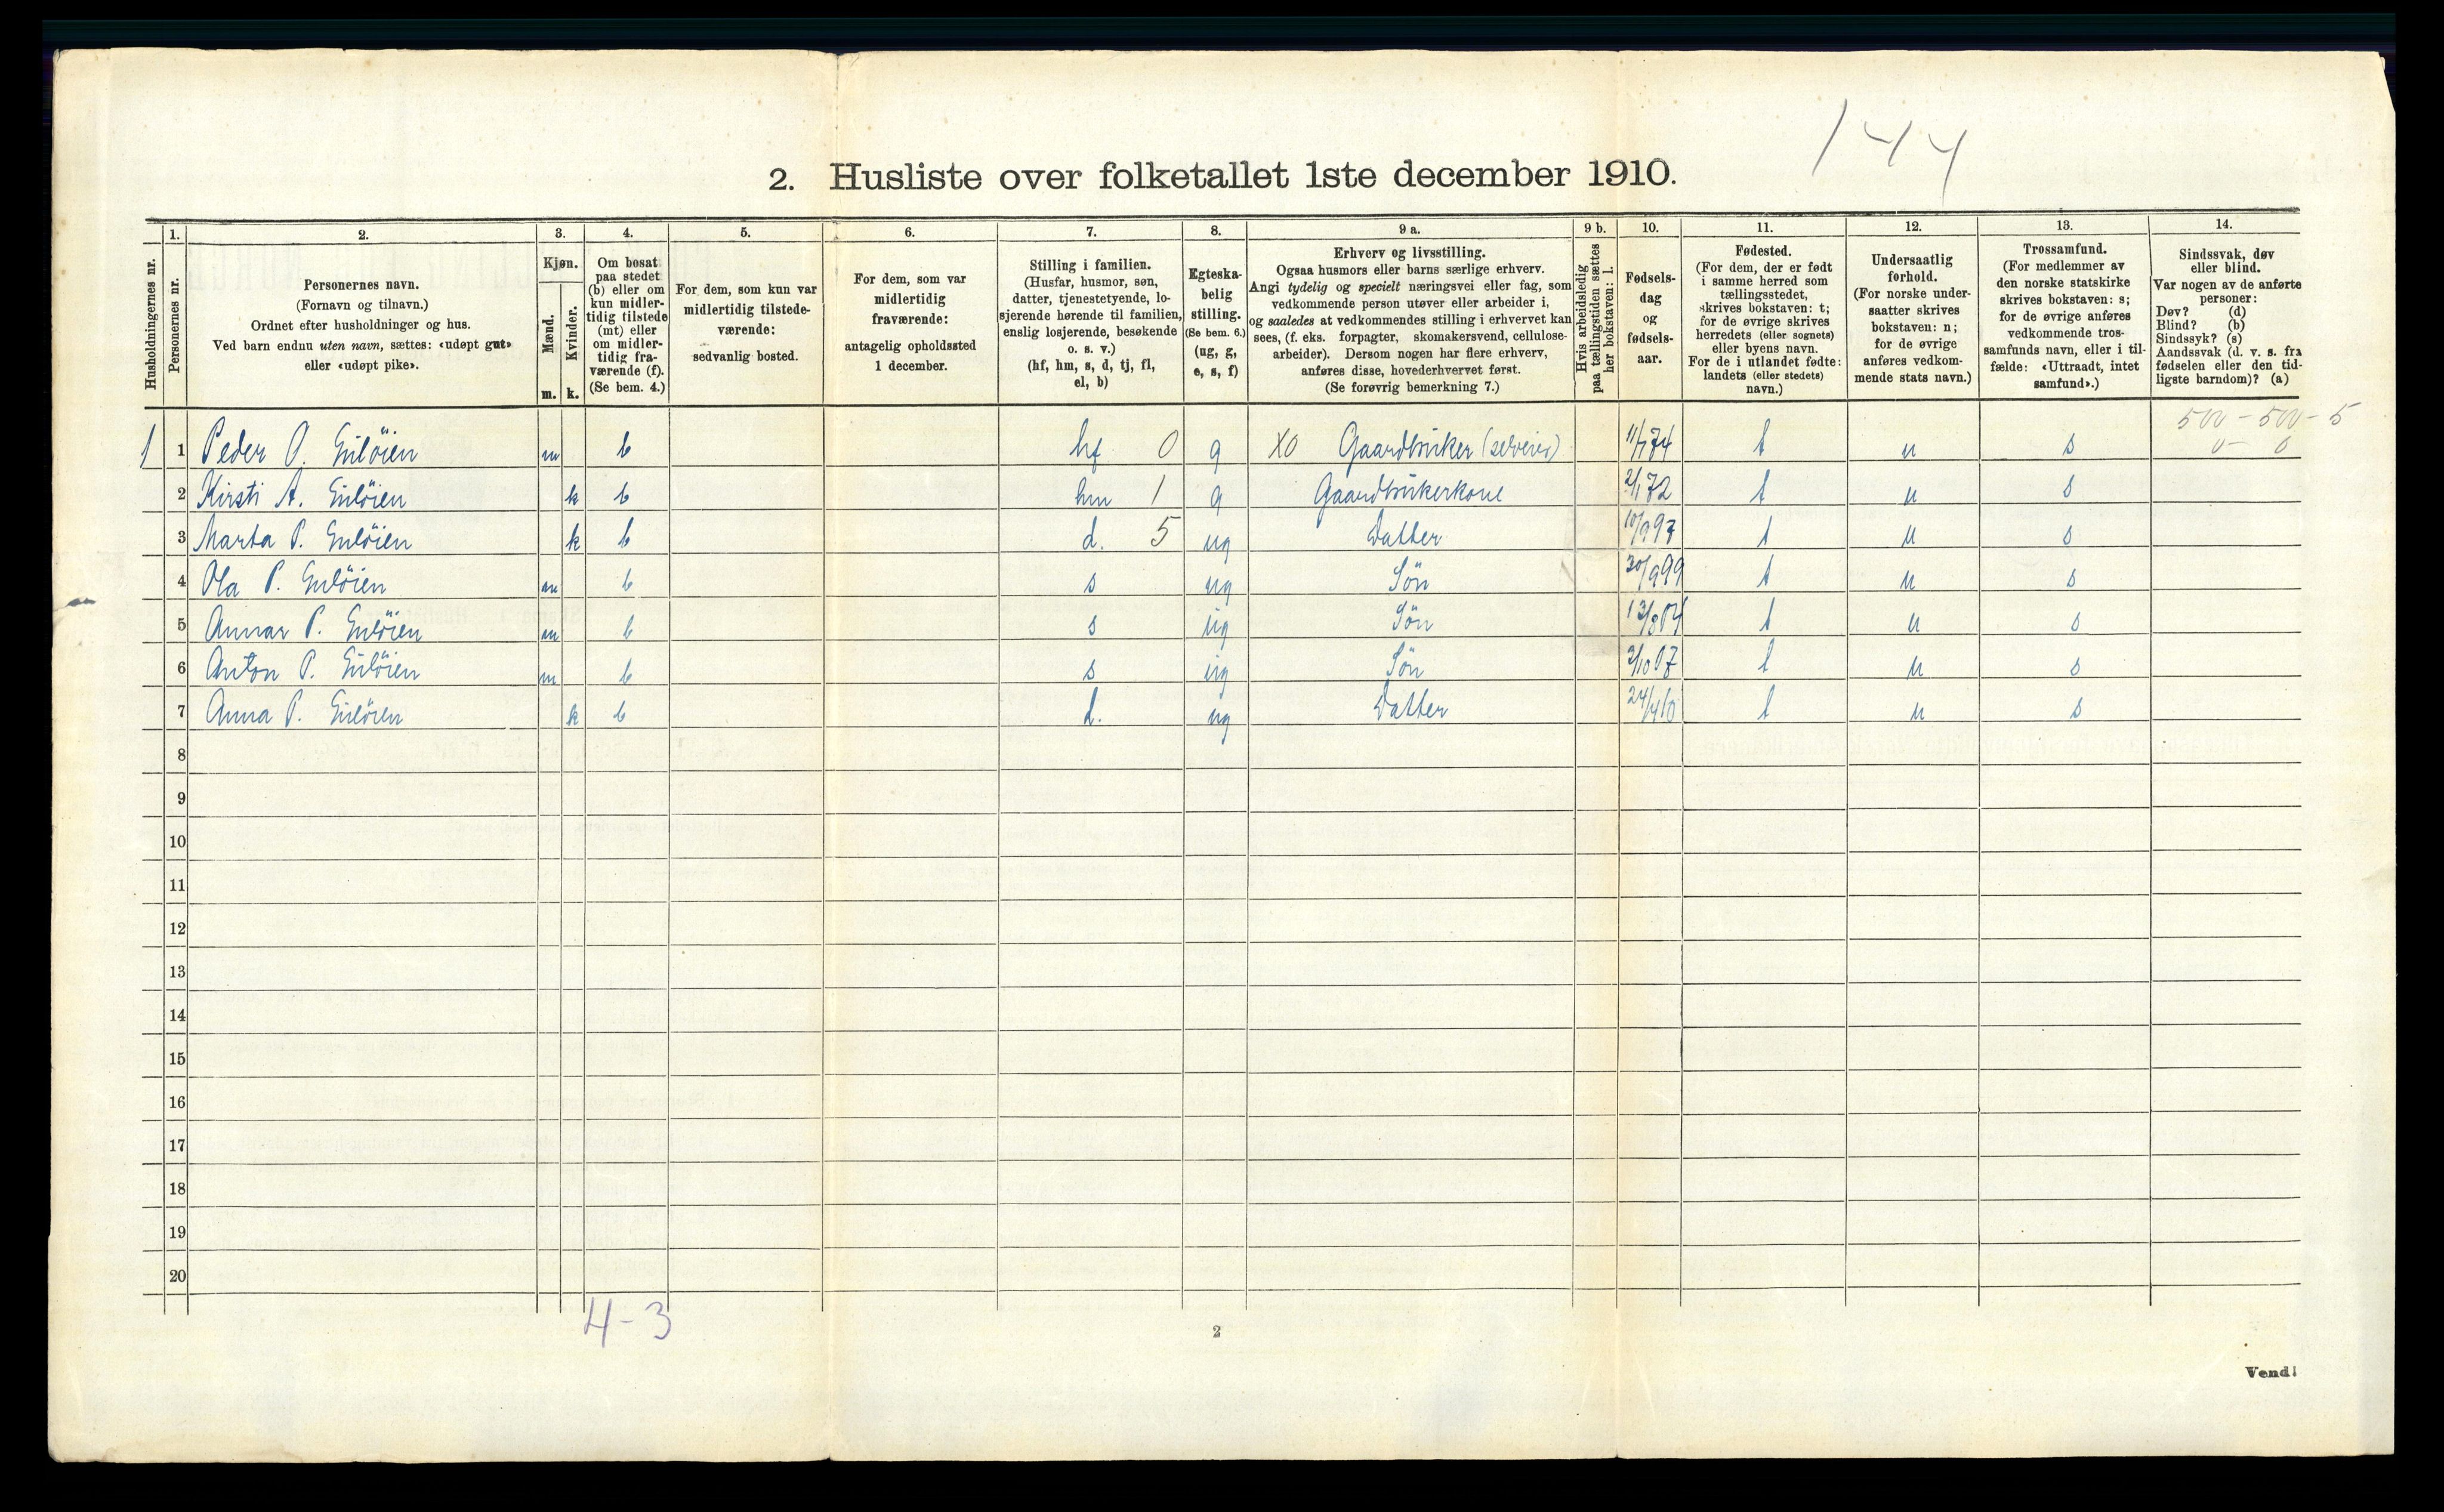 144
2. Husliste over folketallet 1ste december 1910.
Husholdningernes nr.
1.
Personernes nr.
2.
Personernes navn.
(Fornavn og tilnavn.)
Ordnet efter husholdninger og hus.
Ved barn endnu uten navn, sættes: «udøpt gut»
eller «udøpt pike».
3.
Kjøn.
Mænd.
Kvinder.
m. k.
4.
Om bosat
paa stedet
(b) eller om
kun midler-
tidig tilstede
(mt) eller
om midler-
tidig fra-
værende (f).
(Se bem. 4.)
5.
For dem, som kun var
midlertidig tilstede-
værende:
sedvanlig bosted.
6.
For dem, som var
midlertidig
fraværende:
antagelig opholdssted
1 december.
7.
Stilling i familien.
(Husfar, husmor, søn,
datter, tjenestetyende, lo-
sjerende hørende til familien,
enslig losjerende, besøkende
o. s. v.)
(hf, hm, s, d, tj, fl,
el, b)
8.
Egteska-
belig
stilling.
(Se bem. 6.)
(ug, g,
e, s, f)
9 a.
Erhverv og livsstilling.
Ogsaa husmors eller barns særlige erhverv.
Angi tydelig og specielt næringsvei eller fag, som
vedkommende person utøver eller arbeider i,
og saaledes at vedkommendes stilling i erhvervet kan
sees, (f. eks. forpagter, skomakersvend, cellulose-
arbeider). Dersom nogen har flere erhverv,
anføres disse, hovederhvervet først.
(Se forøvrig bemerkning 7.)
9 b.
Hvis arbeidsledig
paa tællingstiden sættes
her bokstaven: l.
10.
Fødsels-
dag
og
fødsels-
aar.
11.
Fødested.
(For dem, der er født
i samme herred som
tællingsstedet,
skrives bokstaven: t;
for de øvrige skrives
herredets (eller sognets)
eller byens navn.
For de i utlandet fødte:
landets (eller stedets)
navn.)
12.
Undersaatlig
forhold.
(For norske under-
saatter skrives
bokstaven: n;
for de øvrige
anføres vedkom-
mende stats navn.)
13.
Trossamfund.
(For medlemmer av
den norske statskirke
skrives bokstaven: s;
for de øvrige anføres
vedkommende tros-
samfunds navn, eller i til-
fælde: «Uttraadt, intet
samfund».)
14.
Sindssvak, døv
eller blind.
Var nogen av de anførte
personer:
Døv? (d)
Blind? (b)
Sindssyk? (s)
Aandssvak (d. v. s. fra
fødselen eller den tid-
ligste barndom)? (a)
500 - 500 - 5
0 - 0
1 1 Peder O. m b hf 0 g X0 Gaardbruker (selveier) 11/1 74 t n s
2 Kirsti A. k b hm 1 g Gaardbrukerkone 2/1 72 t n s
3 Marta P. k b d. 5 ug Datter 10/9 97 t n s
4 Ola P. m b s ug Søn 30/9 99 t n s
5 Annar P. m b s ug Søn 13/8 04 t n s
6 Anton P. m b s ug Søn 3/10 07 t n s
7 Anna P. k b d. ug Datter 24/4 10 t n s
8
9
10
11
12
13
14
15
16
17
18
19
20
4-3
2
Vend!